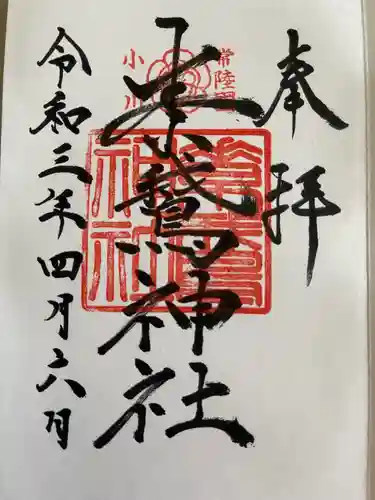 奉拝
常陸国
素鵞神社
小川
素鵞
神社
令和三年四月六日